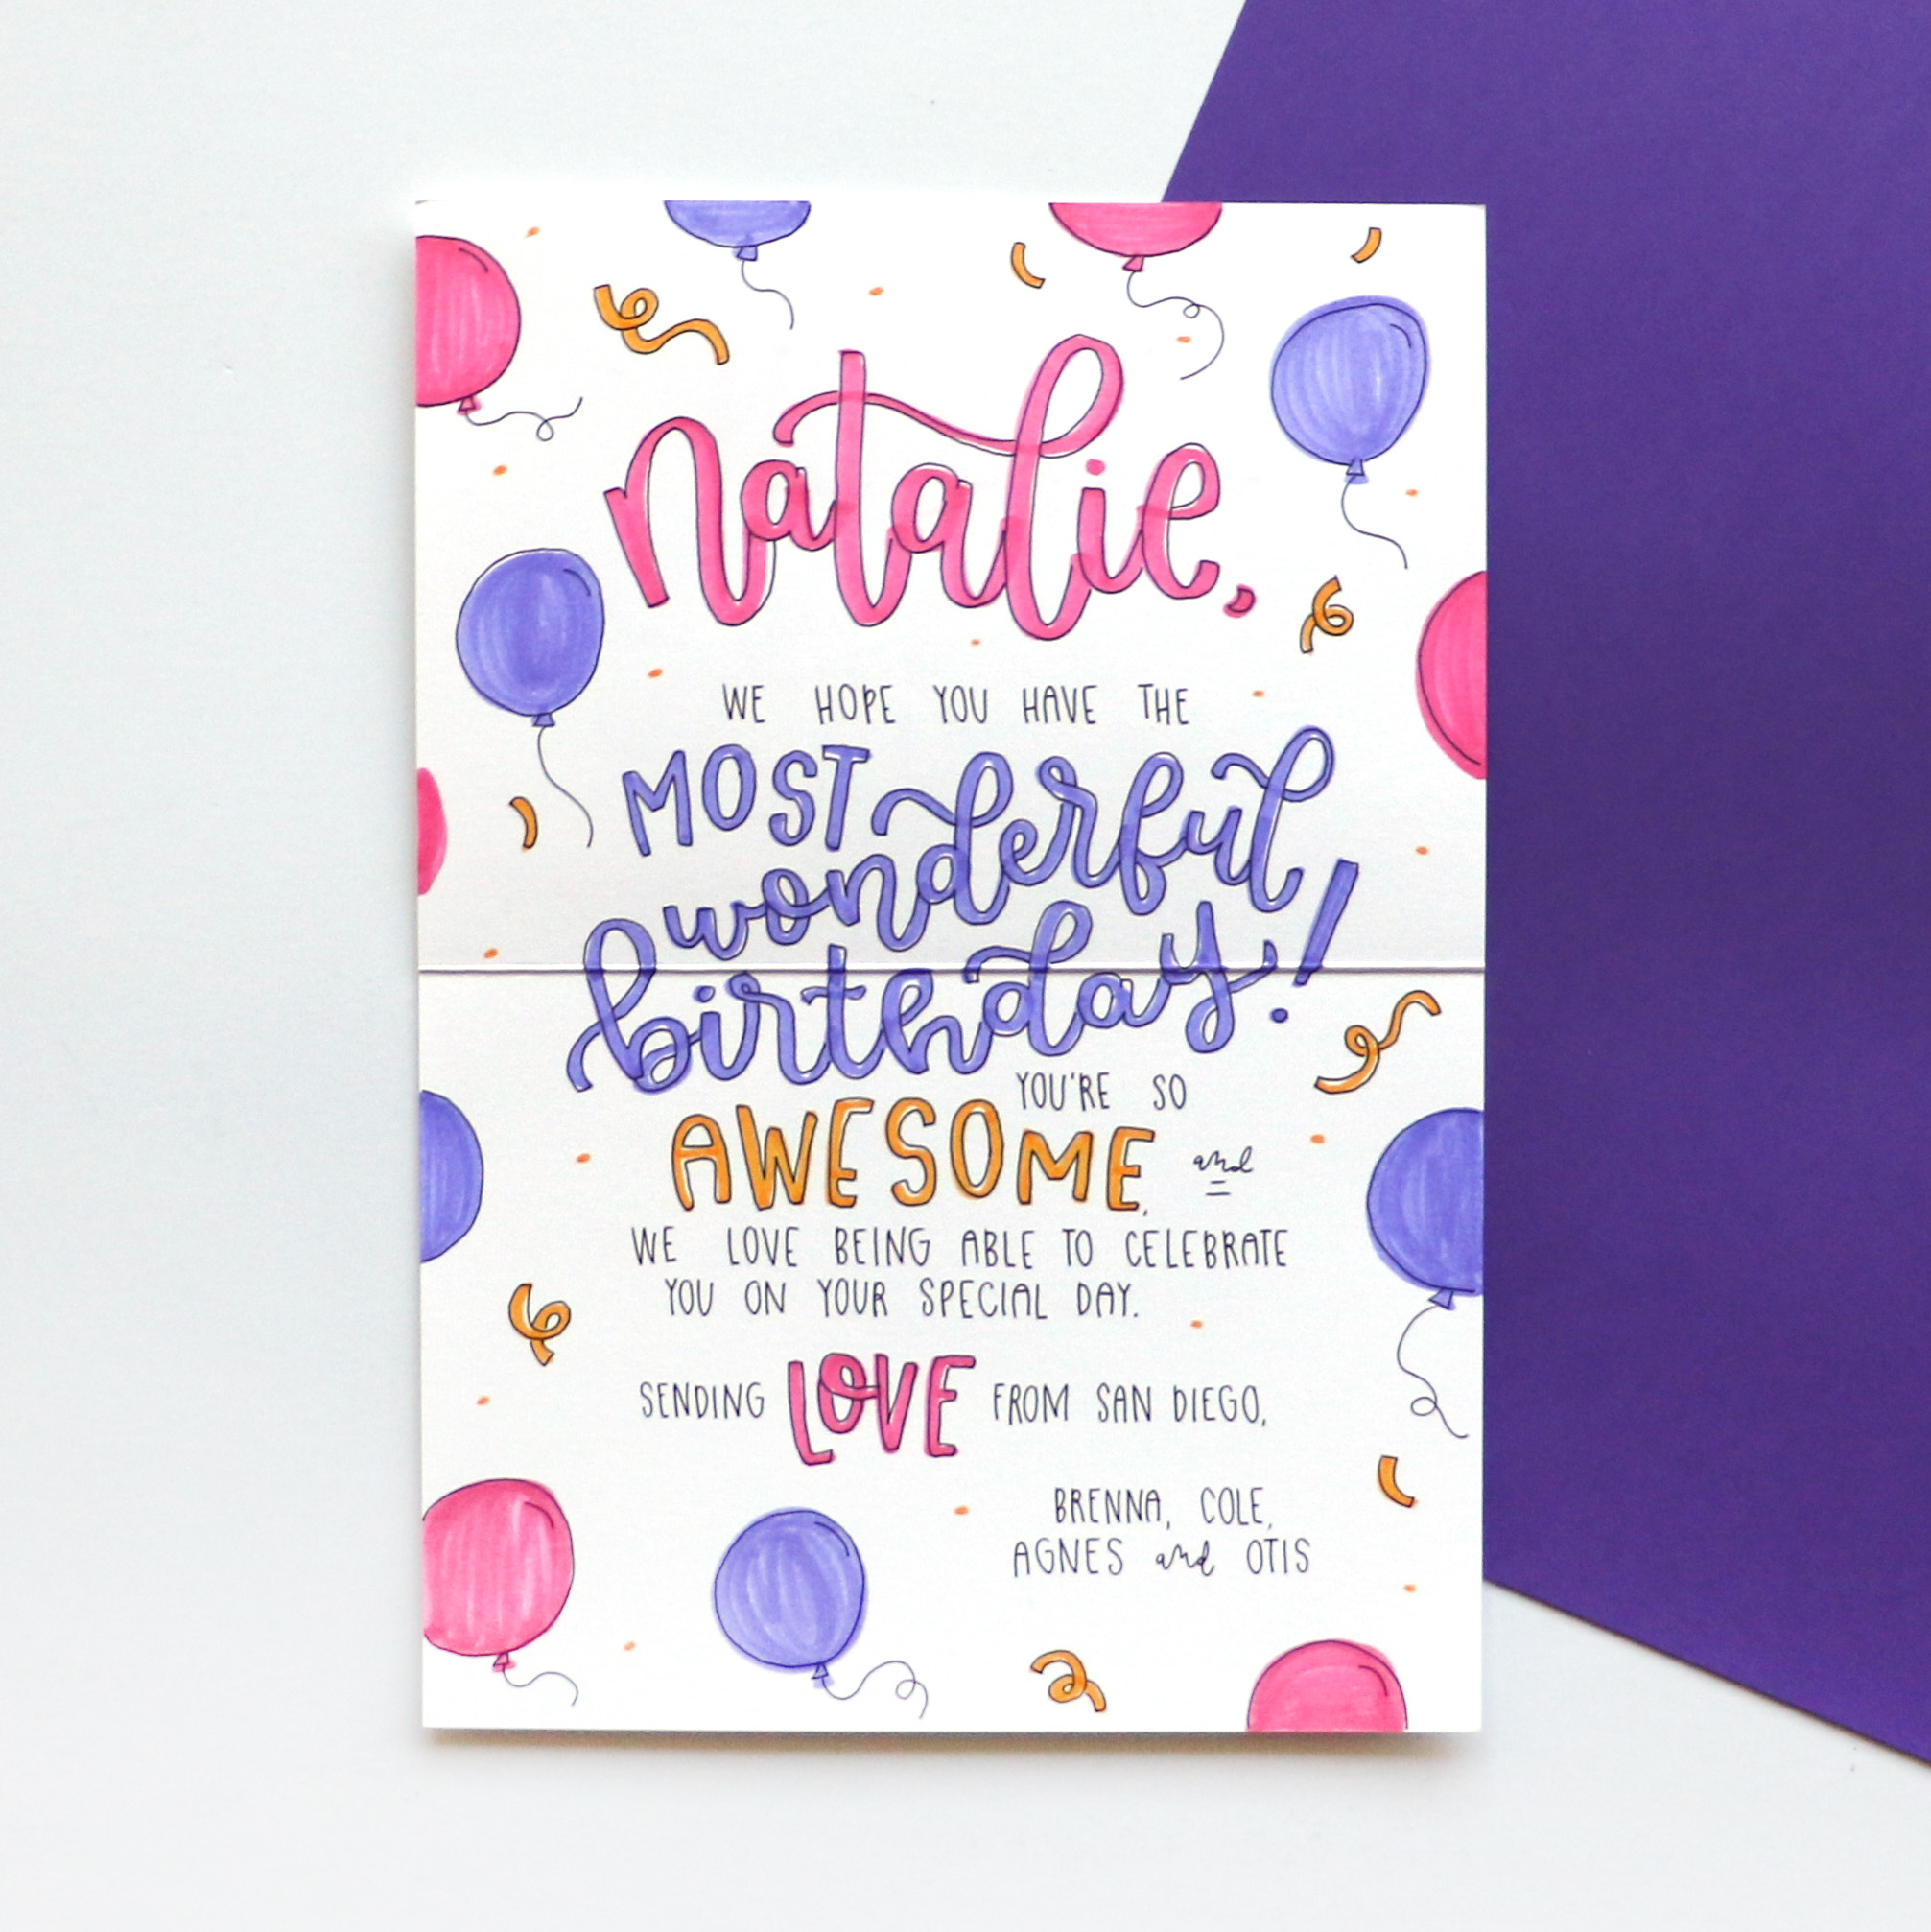 natalie,
WE HOPE YOU HAVE THE
MOST
wonderful
birthday!
YOU'RE SO
AWESOME, and
WE LOVE BEING ABLE TO CELEBRATE
YOU ON YOUR SPECIAL DAY.
SENDING LOVE FROM SAN DIEGO,
BRENNA, COLE,
AGNES and OTIS